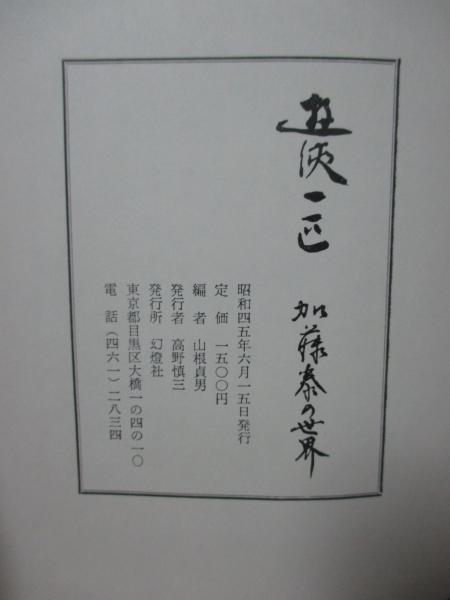 遊侠一匹
加藤泰の世界
昭和四五年六月一五日発行
定価 一五〇〇円
編者 山根貞男
発行者 高野慎三
発行所 幻燈社
東京都目黒区大橋一の四の一〇
電話(四六一)二八三四